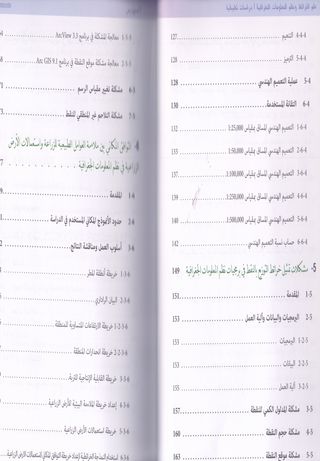 علم الخرائط ونظم المعلومات الجغرافية / دراسات تطبيقية
4-4-4 التعميم 127
5-4-4 الترميز 128
5-4 عملية التعميم الهندسي 128
6-4 الثقافة المستخدمة 130
1-6-4 التعميم الهندسي للسائل بمقياس 1:25,000 132
2-6-4 التعميم الهندسي للسائل بمقياس 1:50,000 133
3-6-4 التعميم الهندسي للسائل بمقياس 1:100,000 137
4-6-4 التعميم الهندسي للسائل بمقياس 1:250,000 139
5-6-4 التعميم الهندسي للسائل بمقياس 1:500,000 140
6-6-4 حساب نسبة التعميم الهندسي 142
5- مشكلات تمثيل خرائط التوزيع بالنقط في برمجيات نظم المعلومات الجغرافية 149
1-5 المقدمة 151
2-5 البرمجيات والبيانات وآلية العمل 153
1-2-5 البرمجيات 153
2-2-5 البيانات 153
3-2-5 آلية العمل
3-5 مشكلة المدلول الكمي للنقطة 157
4-5 مشكلة حجم النقطة 160
5-5 مشكلة موقع النقطة 163
معالجة المشكلة في برنامج ArcView 3.3
معالجة مشكلة موقع النقطة في برنامج Arc GIS 9.1
6-5 مشكلة تغيير مقياس الرسم
7-5 مشكلة التلاحم غير المنطقي للنقط
التوافق المكاني بين ملاءمة العوامل الطبيعية للزراعة واستعمالات الأرض
الزراعية في نظم المعلومات الجغرافية
1-6 المقدمة
2-6 حدود الأنموذج المكاني المستخدم في الدراسة
3-6 أسلوب العمل ومناقشة النتائج
1-3-6 خريطة أنظمة المطر
2-3-6 البيان الراداري
1-2-3-6 خريطة الارتفاعات المتساوية للمنطقة
2-2-3-6 خريطة انحدارات المنطقة
3-3-6 خريطة القابلية الإنتاجية للتربة
4-3-6 إعداد خريطة الملاءمة البيئية للأرض الزراعية
5-3-6 خريطة استعمالات الأرض الزراعية